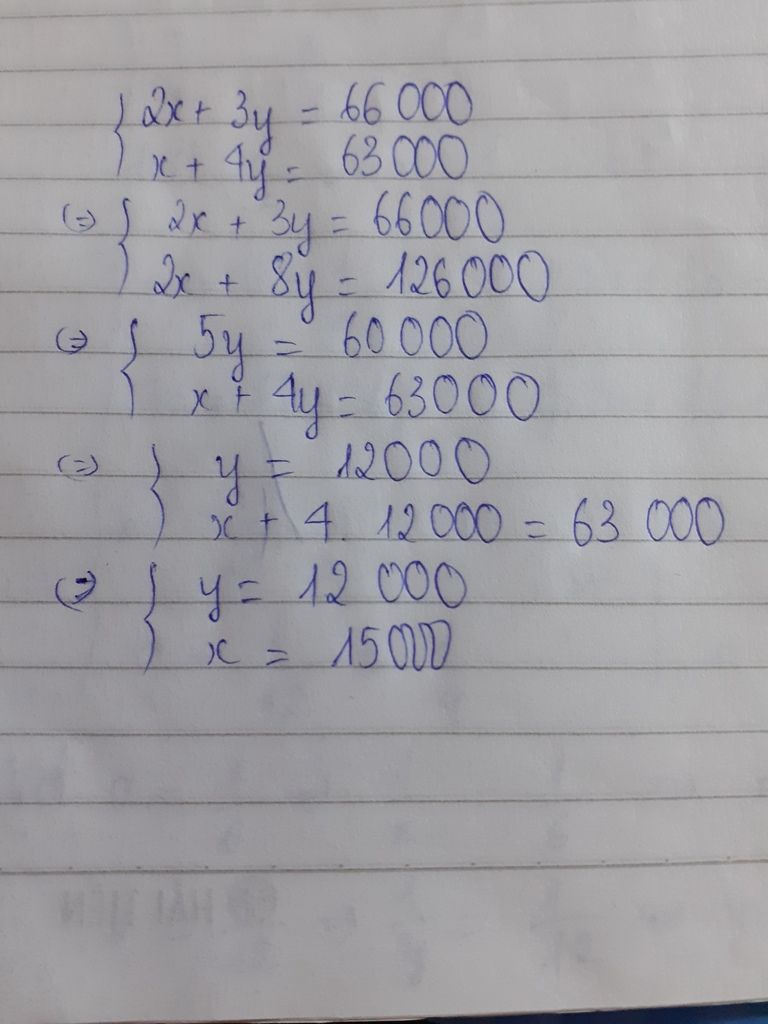 { 2x + 3y = 66 000
x + 4y = 63 000
(=) { 2x + 3y = 66000
2x + 8y = 126000
(=) { 5y = 60 000
x + 4y = 63000
(=) { y = 12000
x + 4. 12 000 = 63 000
(=) { y = 12 000
x = 15000